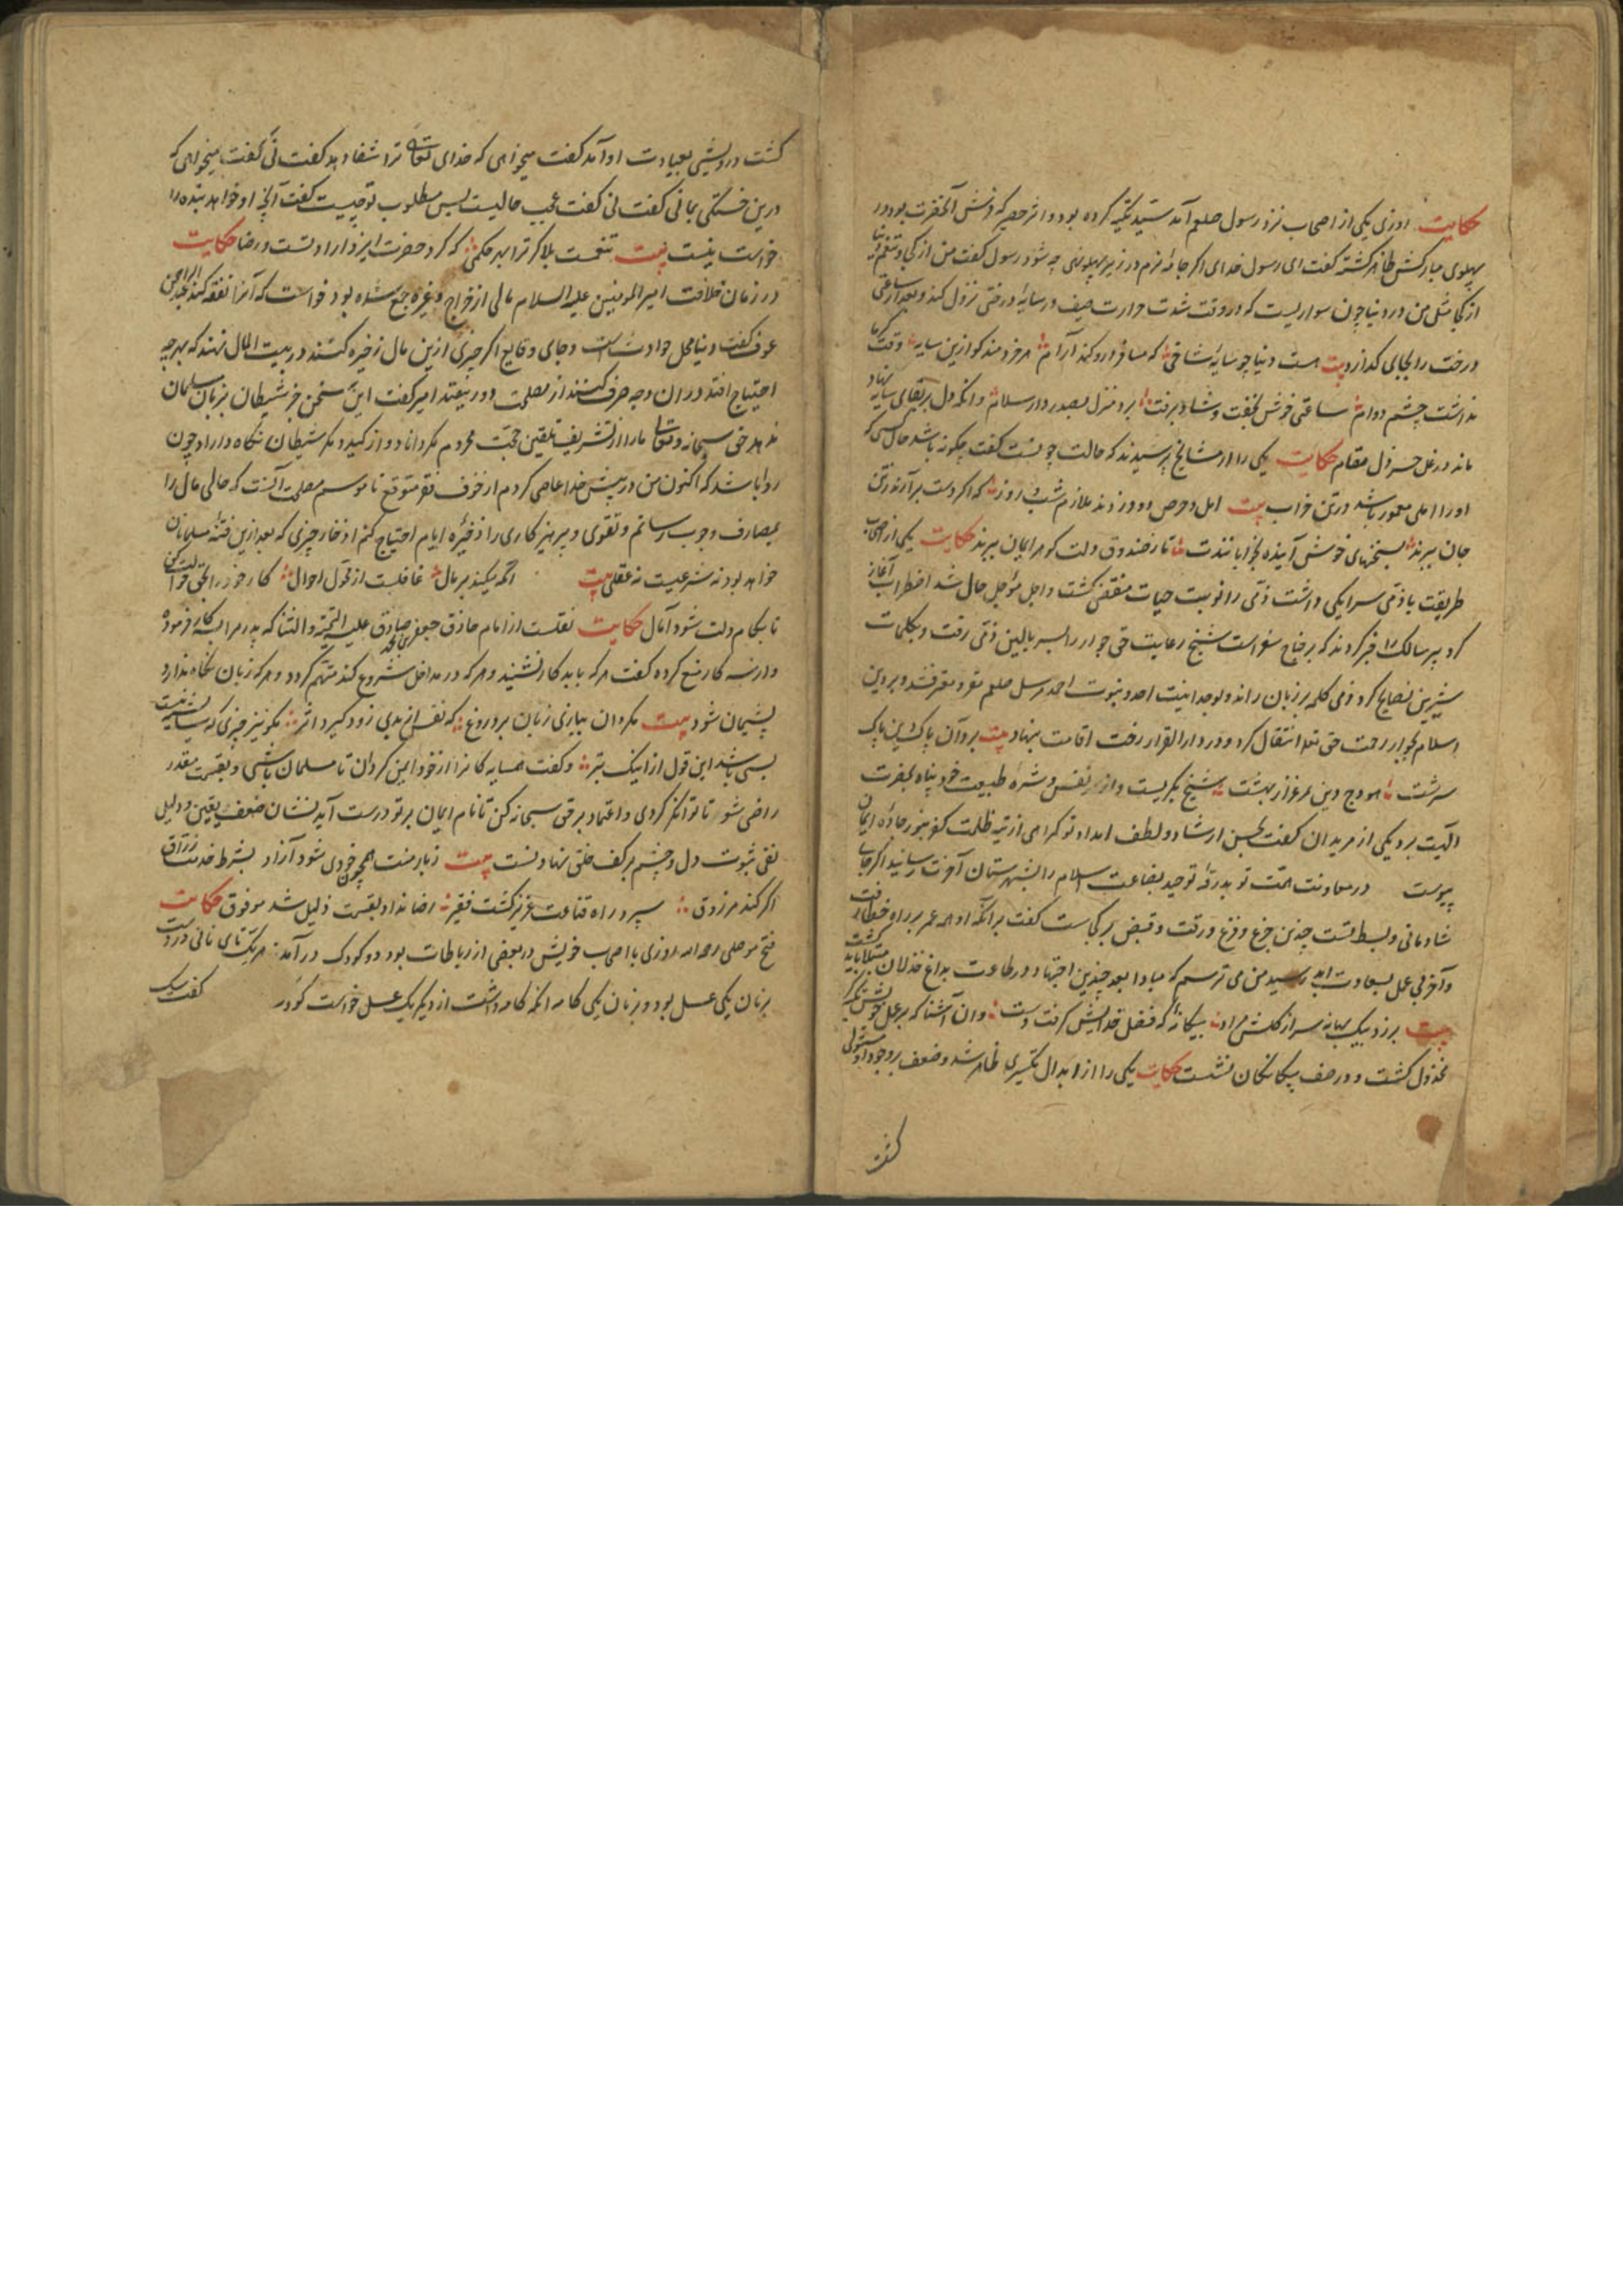 حکایت روزی یکی از اصحاب نزد رسول صلعم آمد سید تکیه کرده بود و اثر حصیر که فرش آنحضرت بود در
پهلوی مبارکش ظاهر گشته گفت ای رسول خدای اگر جامهٔ نرم در زیر پهلو نهی چه شود رسول گفت من از کجا و تنعم دنیا
از کجا مثل من در دنیا چون سواریست که در وقت شدت حرارت صیف در سایهٔ درختی نزول کند و بعد از ساعتی
درخت را بجای گذارد بیت هست دنیا چو سایهٔ شاخی که مسافر درو کند آرام هر خردمند کو ازین سایه وقت گرما
نداشت چشم دوام ساعتی خوش بخفت و شاد برفت برد منزل بصدر دار سلام وانکه دل بر بقای سایه نهاد
ماند در غل خزل مقام حکایت یکی را از مشایخ پرسیدند که حالت چونست گفت چگونه باشد حال کسی که
او را املی معمور باشد در تن خراب بیت امل و حرص دو دزدند ملازم شب و روز که اگر دست برآرند ز تن
جان ببرند بسخنهای خوش آینده بخوابانندت تا ز صندوق دلت گوهر ایمان ببرند حکایت یکی از اصحاب
طریقت با ذمی سرایکی داشت ذمی را نوبت حیات منقضی گشت و اجل مؤجل حال شد اضطراب آغاز
کرد پیر سالک را خبر کردند که بر جناح سفر است شیخ رعایت حق جوار را بسر بالین ذمی رفت و بکلمات
شیرین نصایح کرد ذمی کلمه بر زبان راند و بوحدانیت احد و نبوت احمد مرسل صلعم مقر و معترف شد و بر دین
اسلام بجوار رحمت حق تعالی انتقال کرد و در دار القرار رخت اقامت بنهاد بیت برد آن پاک دین پاک
سرشت هودج دین بمرغزار بهشت شیخ بگریست و از نفس و شره طبیعت خود پناه بحضرت
الهیت برد یکی از مریدان گفت بحسن ارشاد و لطف امداد تو گمراهی از تیه ظلمت کفر بنور جادهٔ ایمان
پیوست در معاونت همت تو بدرقهٔ توحید بضاعت اسلام را بشهرستان آخرت رسانید اگر جای
شادمانی و بسط تست چندین جزع و فزع و رقت و قبض بر کجاست گفت بر آنکه او همه عمر بر راه خطا رفت
و آخر بی عمل بسعادت ابد رسید من می ترسم که مبادا بعد چندین اجتهاد در طاعت بداغ خذلان مبتلا باید گشت
بیت برزد بیک بهانه سر از گلشن مراد بیگانهٔ که فضل خدایش گرفت دست وان آشنا که بر عمل خویش تکیه کرد
مخذول گشت و در صف بیگانگان نشست حکایت یکی را از ابدال تکسری ظاهر شد و ضعف بر وجود او مستولی
گشت
گشت درویشی بعیادت او آمد گفت میخواهی که خدای تعالی ترا شفا دهد گفت نی گفت میخواهی که
درین خستگی بمانی گفت نی گفت عجب حالیست پس مطلوب تو چیست گفت آنچه او خواهد بنده را
خواست نیست بیت نعمت بلا گر ترا بهر حکمی که کرد حضرت ایزد ارادتست و رضا حکایت
در زمان خلافت امیر المومنین علیه السلام مالی از خراج و غیره جمع شده بود خواست که آنرا نفقه کند عبد الرحمن
عوف گفت دنیا محل حوادث است و جای وقایع اگر چیزی ازین مال ذخیره کنند در بیت المال نهند که بهر چه
احتیاج افتد در آن وجه صرف کنند از مصلحت دور نیفتد امیر گفت این سخن جز شیطان بر زبان سلمان
ندهد حق سبحانه و تعالی ما را از تشریف تلقین حجت محروم مگرداناد و از کید و مکر شیطان نگاه داراد چون
روا باشد که اکنون من در پیش خدا عاصی گردم از خوف فقر متوقع تا موسم مصلحت آنست که حالی مال را
بمصارف وجوب رسانم و تقوی و پرهیز کاری را ذخیرهٔ ایام احتیاج کنم ادخار چیزی که بعد ازین فتنهٔ مسلمانان
خواهد بود نه شرعیست نه عقلی بیت آنکه تکیه کند بر مال غافلست از تحول احوال کار خود را بحق حوالت کن
تا بکام دلت شود آمال حکایت نقلست از امام حاذق جعفر بن محمد صادق علیه التحیة و الثنا که پدر مرا بسه کار فرمود
و از سه کار منع کرده گفت هر که با بد کار نشیند و هر که در مداخل شروع کند متهم گردد و هر که زبان نگاه ندارد
پشیمان شود بیت مگردان ببازی زبان بر دروغ که نفس از بدی زود گیرد اثر مگو نیز چیزی که شایسته نیست
بسی باشد این قول از آن نیک بتر و گفت همسایه گانرا از خود ایمن گردان تا مسلمان باشی و بقسمت مقدر
راضی شو تا توانگر گردی و اعتماد بر حق سبحانه کن تا نام ایمان بر تو درست آید نشان ضعف یقین و دلیل
نفی ثبوت دل و چشم بر کف خلقی نهاد نست بیت ز بار منت همچون خودی شود آزاد بشرط خدمت رزاق
اگر کند مرزوق سپرد راه قناعت عزیز گشت فقیر رضا نداد بقسمت ذلیل شد موفوق حکایت
فتح موصلی رحمه الله روزی با اصحاب خویش در بعضی از رباطات بود دو کودک در آمد هر یک تای نانی در دست
بر نان یکی عسل بود و بر نان یکی کامه آنکه کامه داشت از دیگر یک عسل خواست کودک گفت سگ